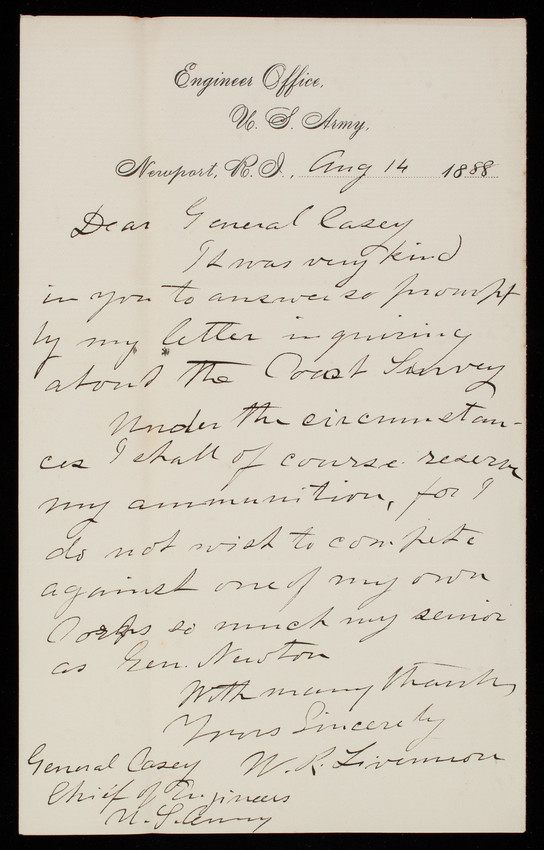 Engineer Office,
U. S. Army,
Newport, R. I., Aug 14 1888
Dear General Casey
It was very kind
in you to answer so prompt
ly my letter inquiring
about the Coast Survey
Under the circumstan-
ces I shall of course reserve
my ammunition, for I
do not wish to compete
against one of my own
Corps so much my senior
as Gen. Newton
With many thanks,
Yours Sincerely
W. R. Livermore
General Casey
Chief of Engineers
U. S. Army